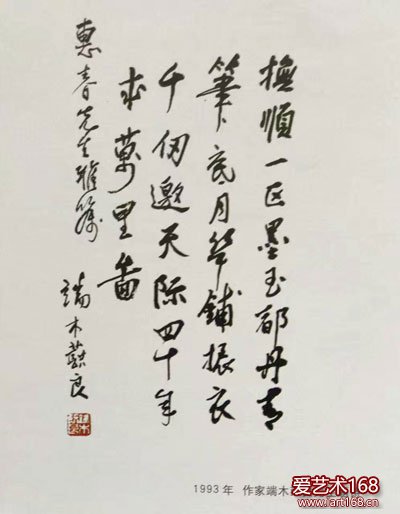 撫順一區墨玉都丹青
筆底月華鋪振衣
千仞邀天際四十年
求萬里
惠春先生雅嘱
端木蕻良
1993年 作家端木
爱艺术168
www.art168.cn